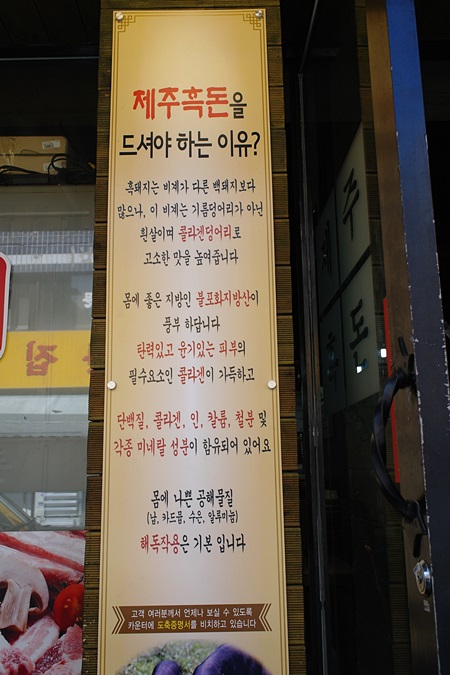 제주흑돈을
드셔야 하는 이유?
흑돼지는 비계가 다른 백돼지보다
많으나, 이 비계는 기름덩어리가 아닌
흰살이며 콜라겐덩어리로
고소한 맛을 높여줍니다
몸에 좋은 지방인 불포화지방산이
풍부 하답니다
탄력있고 윤기있는 피부의
필수요소인 콜라겐이 가득하고
단백질, 콜라겐, 인, 칼륨, 철분 및
각종 미네랄 성분이 함유되어 있어요
몸에 나쁜 공해물질
(납, 카드뮴, 수은, 알루미늄)
해독작용은 기본 입니다
고객 여러분께서 언제나 보실 수 있도록
카운터에 도축증명서를 비치하고 있습니다
제주
흑돈
집